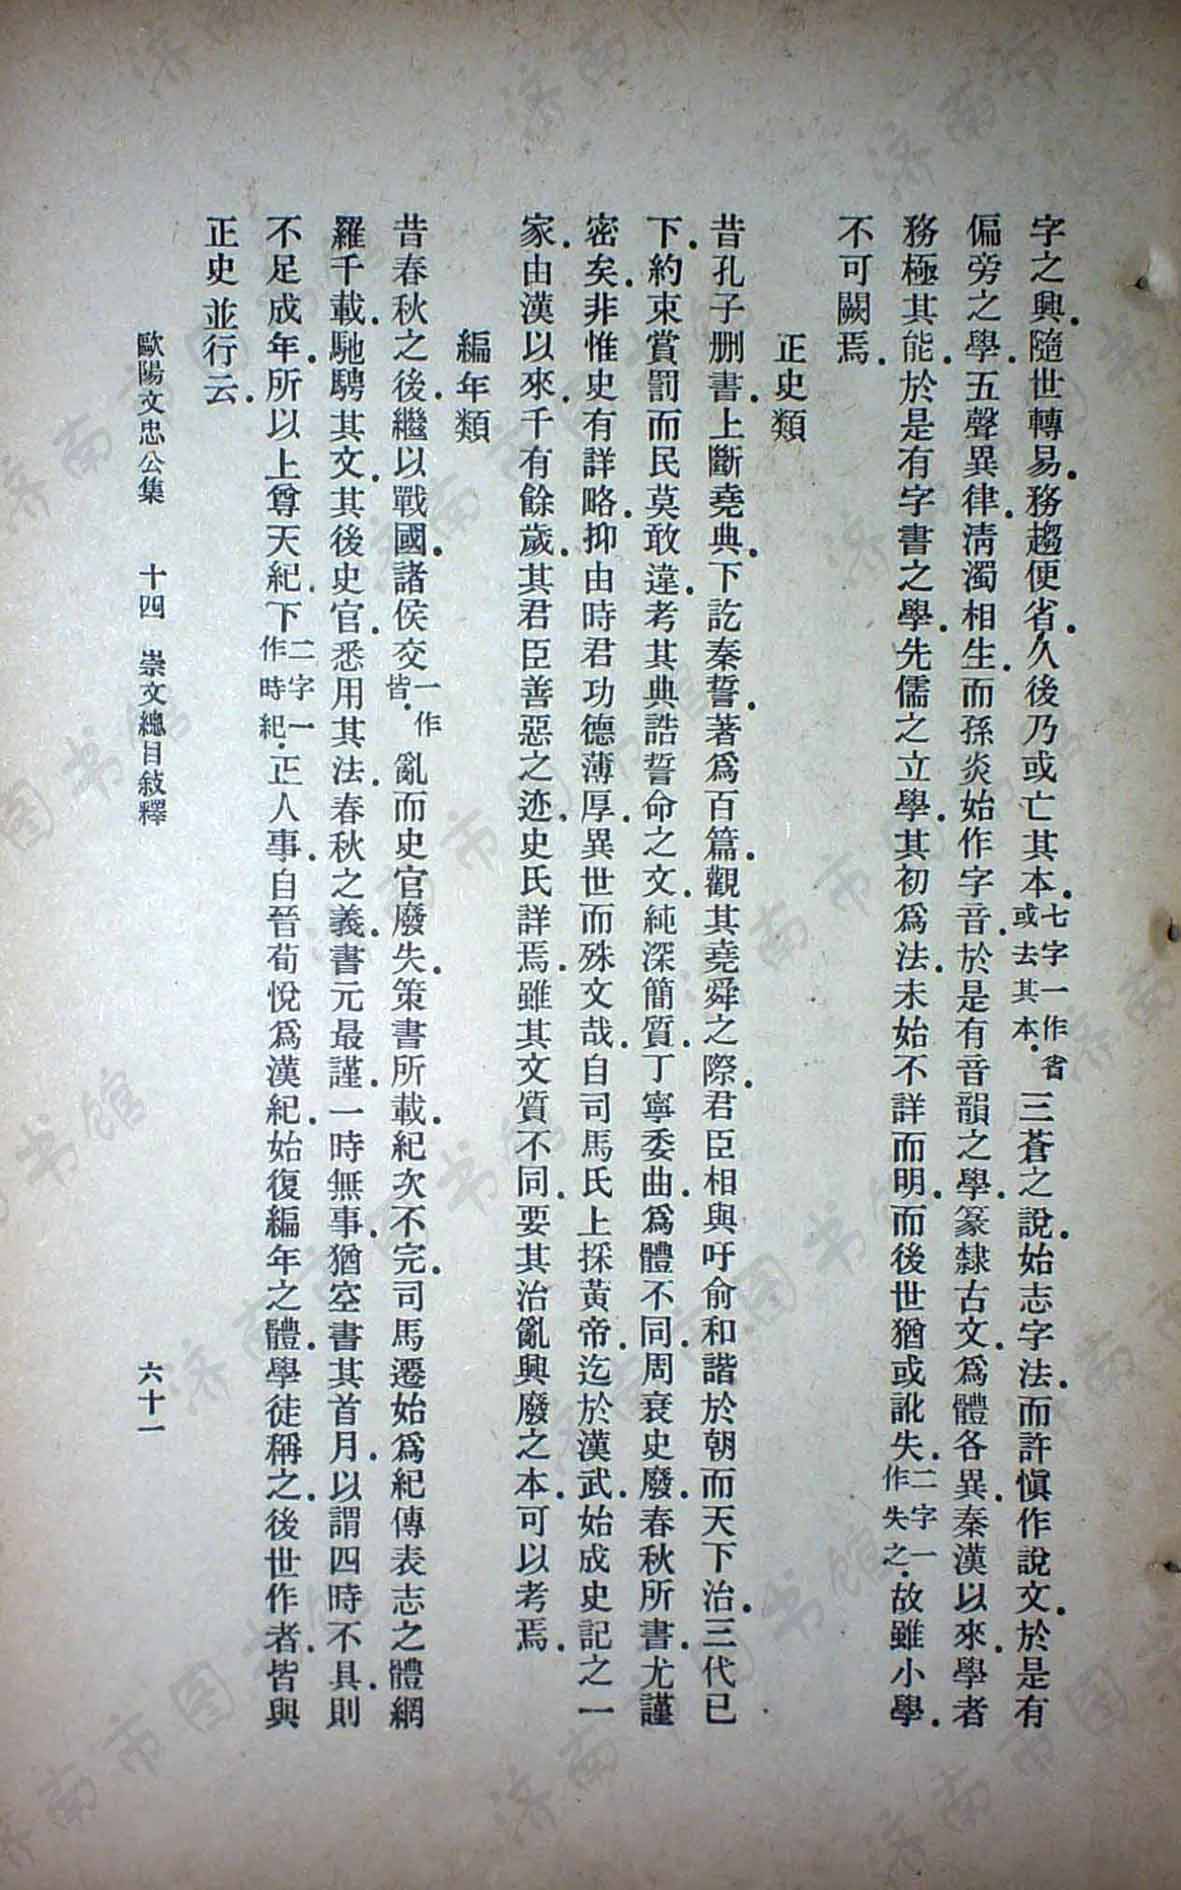 字之興．隨世轉易．務趨便省．久後乃或亡其本．七字一作省或去其本．三蒼之說．始志字法．而許愼作說文．於是有
偏旁之學．五聲異律．淸濁相生．而孫炎始作字音．於是有音韻之學．篆隸古文．爲體各異．秦漢以來．學者
務極其能．於是有字書之學．先儒之立學．其初爲法．未始不詳而明．而後世猶或訛失．二字一作失之．故雖小學．
不可闕焉．
正史類
昔孔子删書．上斷堯典．下訖秦誓．著爲百篇．觀其堯舜之際．君臣相與吁俞和諧於朝而天下治．三代已
下．約束賞罰而民莫敢違．考其典誥誓命之文．純深簡質．丁寧委曲．爲體不同．周衰史廢．春秋所書．尤謹
密矣．非惟史有詳略．抑由時君功德薄厚．異世而殊文哉．自司馬氏上採黃帝．迄於漢武．始成史記之一
家．由漢以來．千有餘歲．其君臣善惡之迹．史氏詳焉．雖其文質不同．要其治亂興廢之本．可以考焉．
編年類
昔春秋之後．繼以戰國．諸侯交一作皆．亂而史官廢失．策書所載．紀次不完．司馬遷始爲紀傳表志之體網
羅千載．馳騁其文．其後史官．悉用其法．春秋之義．書元最謹．一時無事．猶空書其首月．以謂四時不具．則
不足成年．所以上尊天紀．下二字一作時紀．正人事．自晉荀悅爲漢紀．始復編年之體．學徒稱之．後世作者．皆與
正史並行云．
歐陽文忠公集 十四 崇文總目敍釋 六十一
济南市图书馆